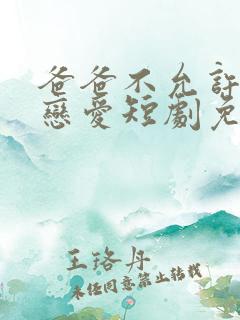 爸爸不允許
戀愛短劇免
王珞丹
未经同意禁止转载